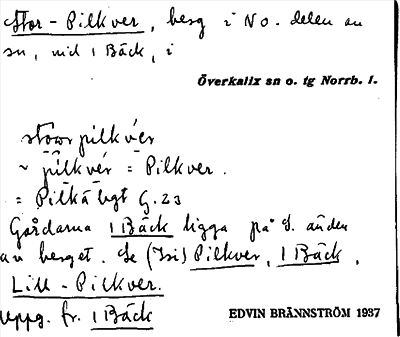 Stor-Pilkver, berg i NO. delen av
sn, vid 1 Bäck, i
Överkalix sn o. tg Norrb. l.
stȯrpilkvér
~ pilkvér = Pilkver.
= Pilkåbgt G.23
Gårdarna 1 Bäck ligga på S. änden
av berget. Se (Isi) Pilkver, 1 Bäck,
Lill-Pilkver.
Uppg. fr. 1 Bäck
EDVIN BRÄNNSTRÖM 1937